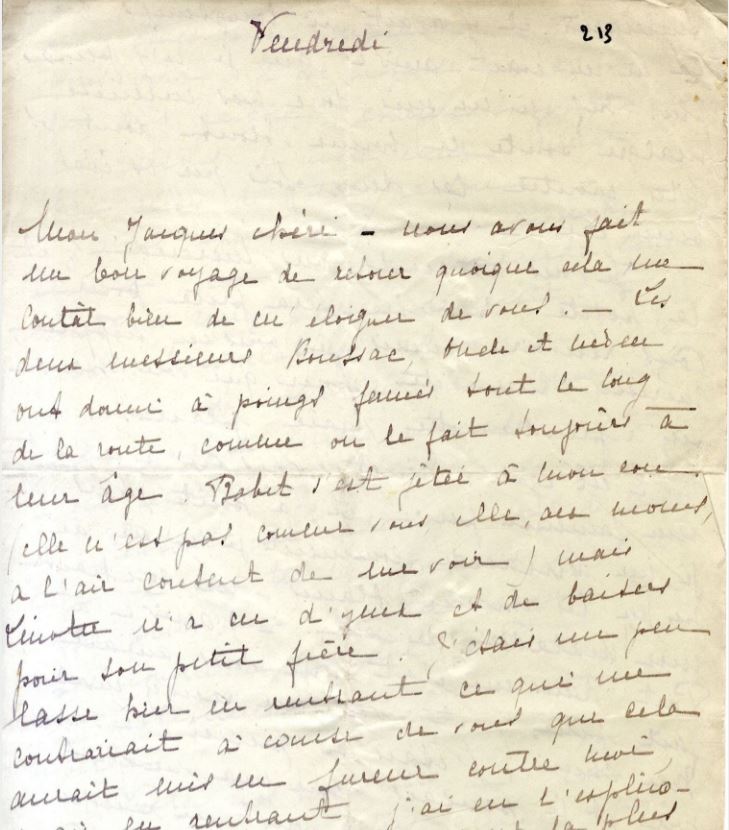 Vendredi
213
Mon Jacques chéri - nous avons fait
un bon voyage de retour quoique cela me
coutât bien de m'eloigner de vous. — Les
deux messieurs Boussac, oncle et neveu
ont dormi à poings fermés tout le long
de la route, comme on le fait toujours à
leur âge. Babet s'est jetée à mon cou
(elle n'est pas comme vous, elle, au moins,
a l'air content de me voir) mais
Linotte n'a eu d'yeux et de baisers
pour son petit frère. J'étais un peu
lasse hier en rentrant ce qui me
contrariait à cause de vous que cela
aurait mis en fureur contre moi,
mais en rentrant j'ai eu l'explica-
la plus